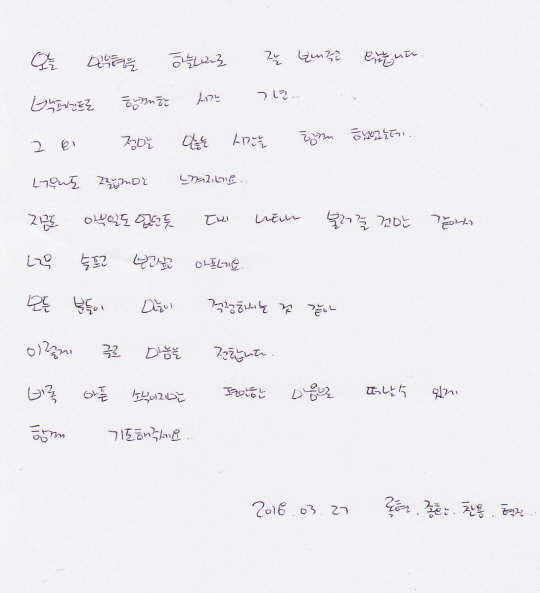 오늘 민우형을 하늘나라로 잘 보내주고 왔습니다.
백퍼센트로 함께한 시간 7년..
그 외 정말 많은 시간을 함께 했었는데..
너무나도 짧게만 느껴지네요..
지금도 아무일도 없던듯 다시 나타나 불러줄 것만 같아서
너무 슬프고 보고싶고 아프네요.
모든 분들이 많이 걱정하시는 것 같아
이렇게 글로 마음을 전합니다.
비록 아픈 소식이지만 편안한 마음으로 떠날수 있게
함께 기도해주세요..
2018.03.27 록현.종환.찬용.혁진.